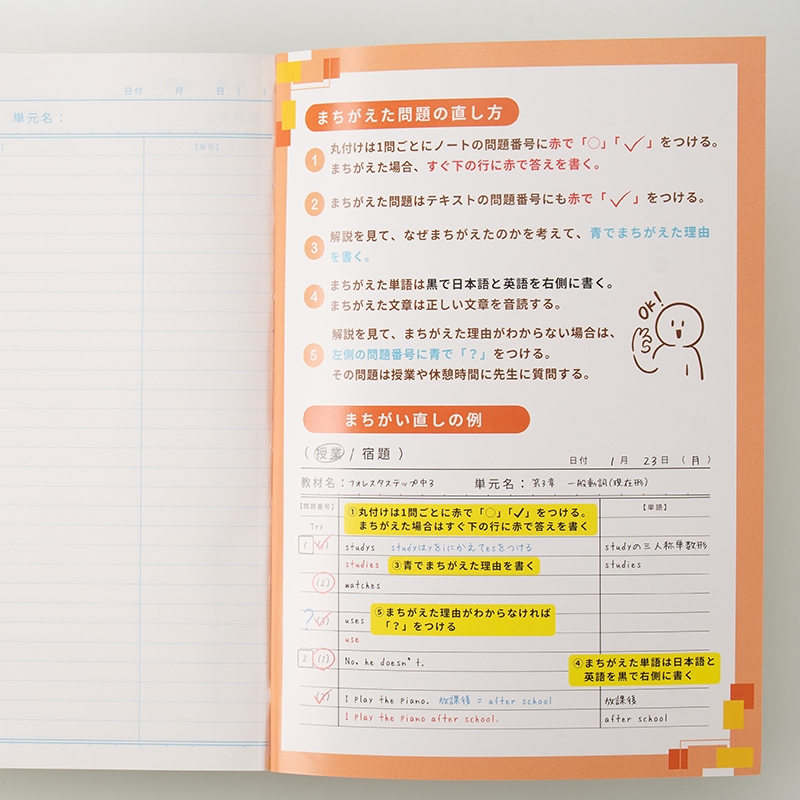 日付 月 日 ( )
単元名：
【単語】
まちがえた問題の直し方
1 丸付けは1問ごとにノートの問題番号に赤で「○」「✓」をつける。
まちがえた場合、すぐ下の行に赤で答えを書く。
2 まちがえた問題はテキストの問題番号にも赤で「✓」をつける。
3 解説を見て、なぜまちがえたのかを考えて、青でまちがえた理由
を書く。
4 まちがえた単語は黒で日本語と英語を右側に書く。
まちがえた文章は正しい文章を音読する。
5 解説を見て、まちがえた理由がわからない場合は、
左側の問題番号に青で「？」をつける。
その問題は授業や休憩時間に先生に質問する。
OK!
まちがい直しの例
( 授業 / 宿題 )
日付 1月 23日 (月)
教材名：フォレスタステップ中3 単元名：第3章 一般動詞(現在形)
【問題番号】 【単語】
①丸付けは1問ごとに赤で「○」「✓」をつける。
まちがえた場合はすぐ下の行に赤で答えを書く
Try
1 (1) studys studyはyをiにかえてesをつける studyの三人称単数形
studies ③青でまちがえた理由を書く studies
(2) watches
⑤まちがえた理由がわからなければ
「？」をつける
? (3) uses
use
2 (1) No, he doesn't.
④まちがえた単語は日本語と
英語を黒で右側に書く
(2) I play the piano. 放課後 = after school 放課後
I play the piano after school. after school